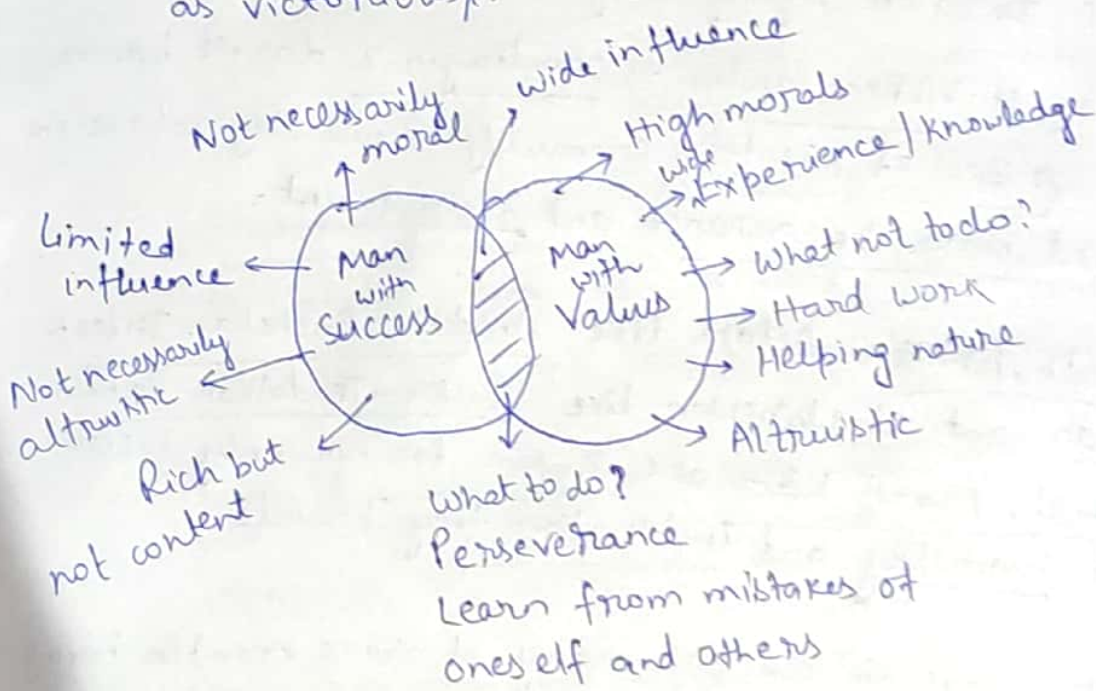 as
wide influence
Not necessarily
moral
High morals
wide
Experience/Knowledge
Limited
influence
Man
with
success
Man
with
Values
What not to do?
Hard work
Helping nature
Not necessarily
altruistic
Altruistic
Rich but
not content
What to do?
Perseverance
Learn from mistakes of
oneself and others